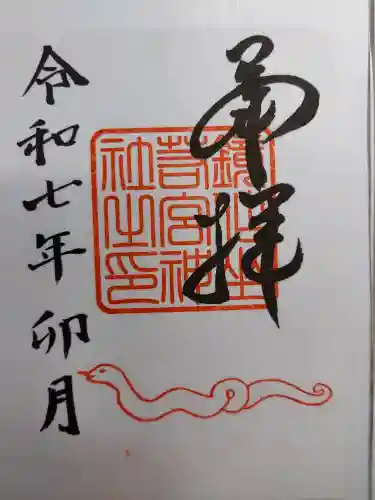 奉拝
宮神
社之印
令和七年卯月